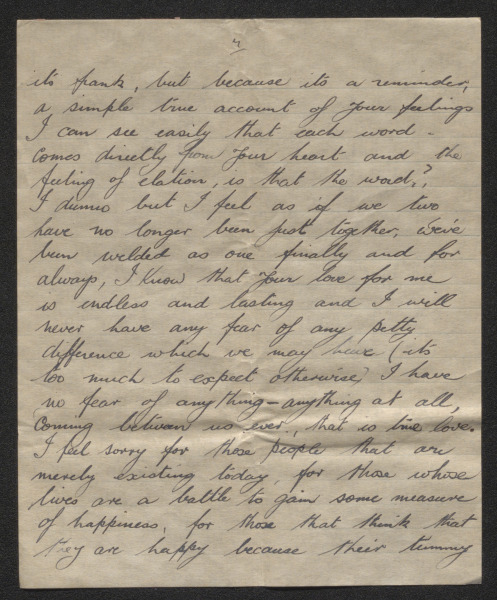 4
its frank, but because its a reminder,
a simple true account of your feelings
I can see easily that each word -
comes directly from your heart and the
feeling of elation, is that the word?,
I dunno but I feel as if we two
have no longer been just together, we've
been welded as one finally and for
always, I know that your love for me
is endless and lasting and I will
never have any fear of any petty
difference which we may have (its
too much to expect otherwise) I have
no fear of anything - anything at all,
coming between us ever, that is true love.
I feel sorry for those people that are
merely existing today, for those whose
lives are a battle to gain some measure
of happiness, for those that think that
they are happy because their tummy